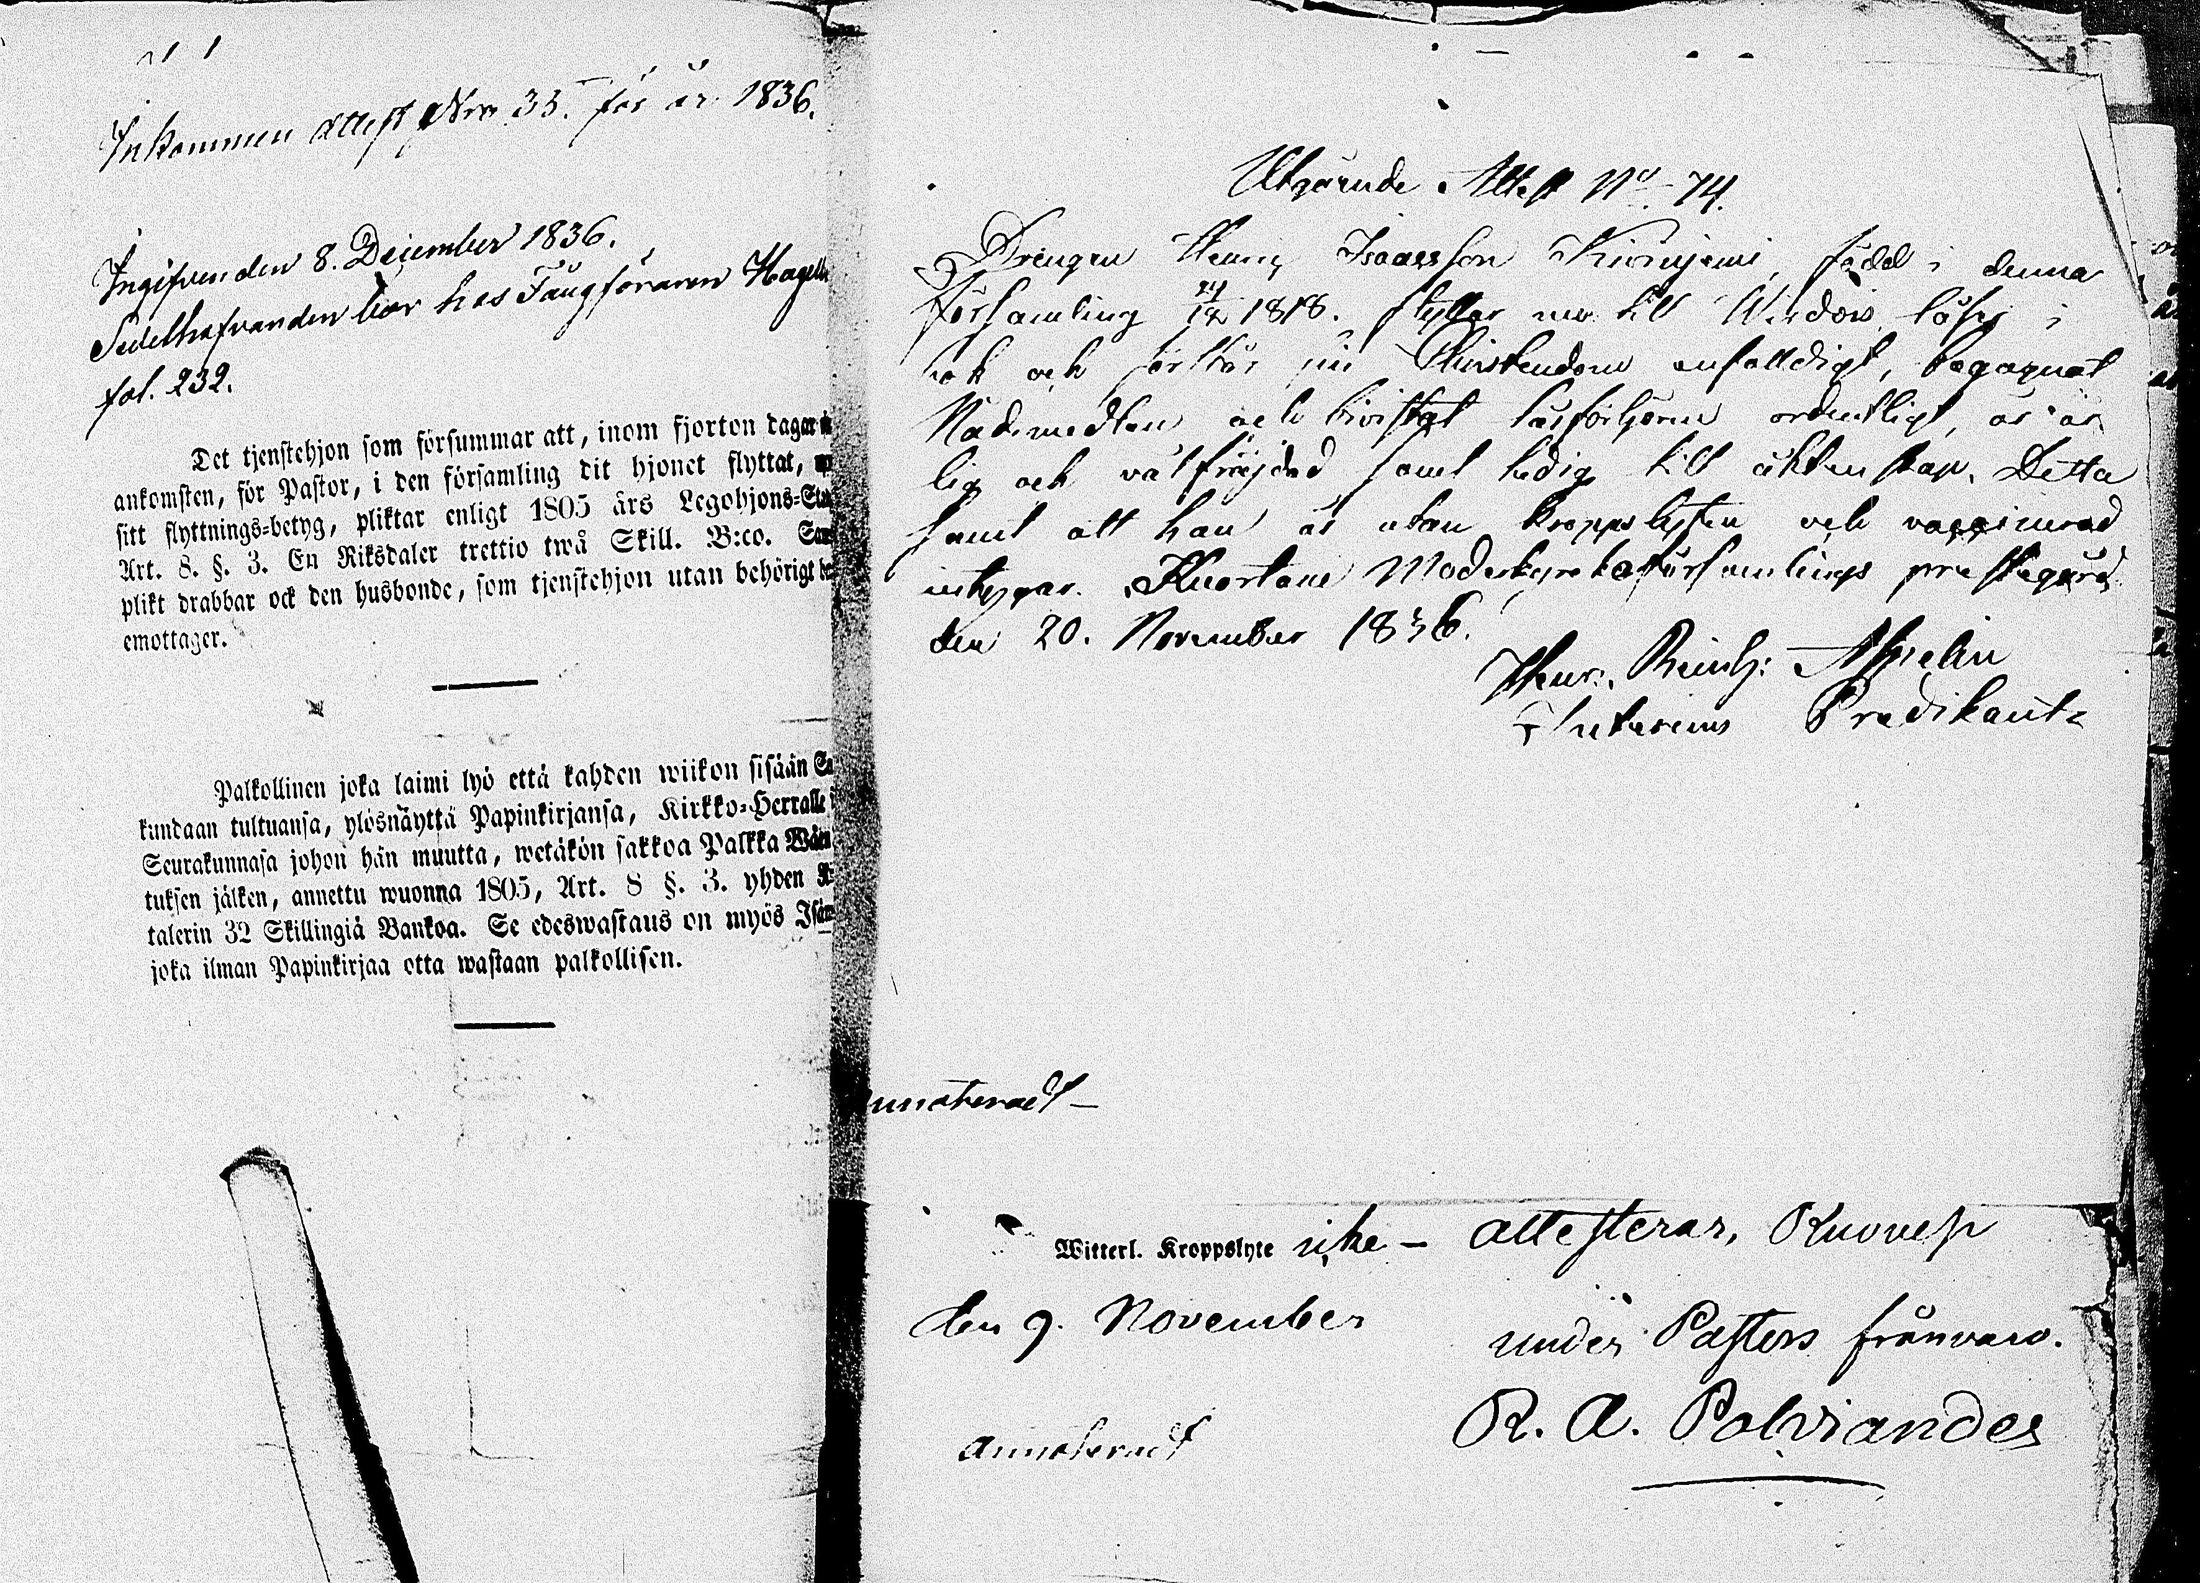 Inkommen attest Nro 33. för år 1836.
Ingifven den 8. December 1836.
Sedelhafvanden bor hos Täugföraren
fol. 232.
Det tjenstehjon som försummar att, inom fjorton dagar
ankomsten, för Pastor, i den församling dit hjonet flyttat,
sitt flyttnings=betyg, pliktar enligt 1805 års Legohjons=
Art. 8. §. 3. En Riksdaler trettio twå Skill. B:co.
plikt drabbar ock den husbonde, som tjenstehjon utan behörigt
emottager.
Palkollinen joka laimi lyö että kahden wiikon sisään
kundaan tultuansa, ylösnäyttä Papinkirjansa, Kirkko=Herralle
Seurakunnasa johon hän muutta, wetäkön sakkoa Palkka
tuksen jälken, annettu wuonna 1805, Art. 8 §. 3. yhden
talerin 32 Skillingiä Bankoa. Se edeswastaus on myös
joka ilman Papinkirjaa otta wastaan palkollisen.
Utgående Attest No 74.
Drengen Isaacsson född i denna
församling 1818. flyttar nu till Wirdois, läser i
bok och förstår sin Christendom enfaldigt, begagnat
Nådemedlen och bivistat läsförhören ordentligt, är är
lig och välfräjdad samt ledig till äktenskap. Detta
samt att han är utan kroppslyten och vaccinerad
intygar. Kuortane Moderkyrkoförsamlings prestegård
den 20. November 1836.
Henr. Reinh: Aspelin
Interims Predikant
annoteradt –
Witterl. Kroppslyte icke – attesterar, Ruovesi
den 9. November under Pastors frånvaro.
annoteradt R. A. Polviander